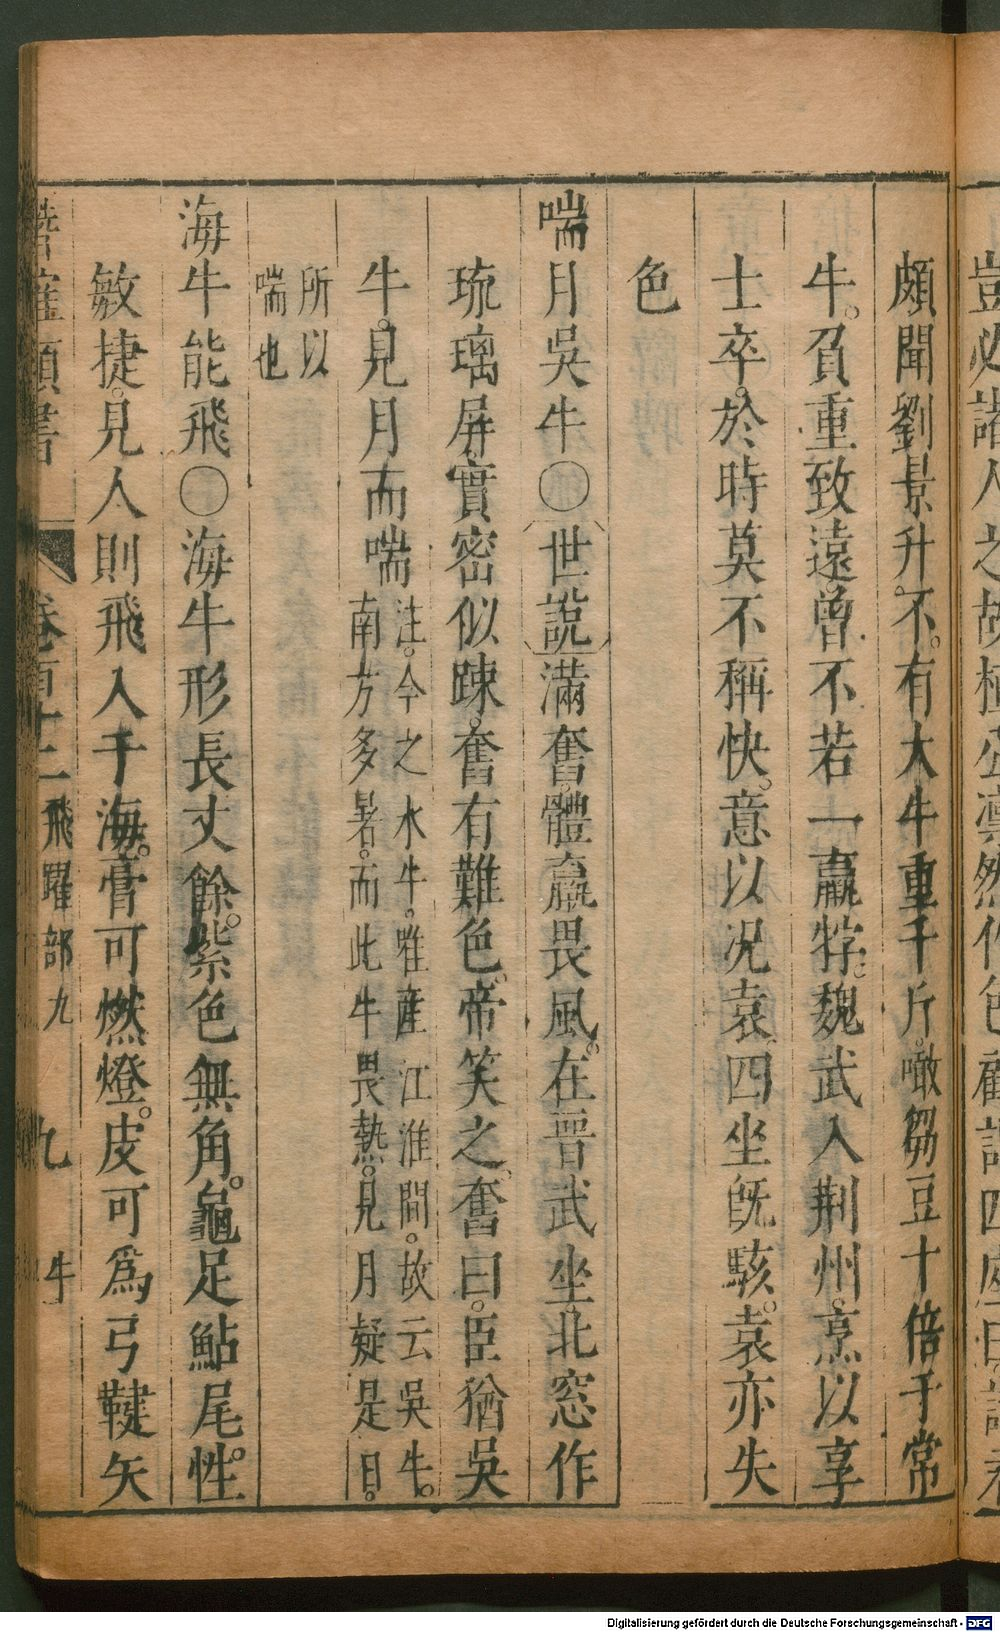 頗聞劉景升不。有大牛重千斤。噉芻豆十倍于常
牛。負重致遠。曾不若一羸牸。魏武入荆州。烹以享
士卒。於時莫不稱快。意以况袁。四坐旣駭。袁亦失
色
喘月吳牛○世說滿奮。體羸畏風。在晉武坐。北窓作
琉璃屏。實密似踈。奮有難色。帝笑之。奮曰。臣猶吳
牛。見月而喘
注。今之水牛。唯産江淮間。故云吳牛。
南方多暑。而此牛畏熱。見月疑是日。
所以
喘也
海牛能飛○海牛形長丈餘。紫色無角。龜足鮎尾。性
敏捷。見人則飛入于海。膏可燃燈。皮可爲弓鞬矢
類書 卷百十二 飛躍部九 九 牛
Digitalisierung gefördert durch die Deutsche Forschungsgemeinschaft - DFG